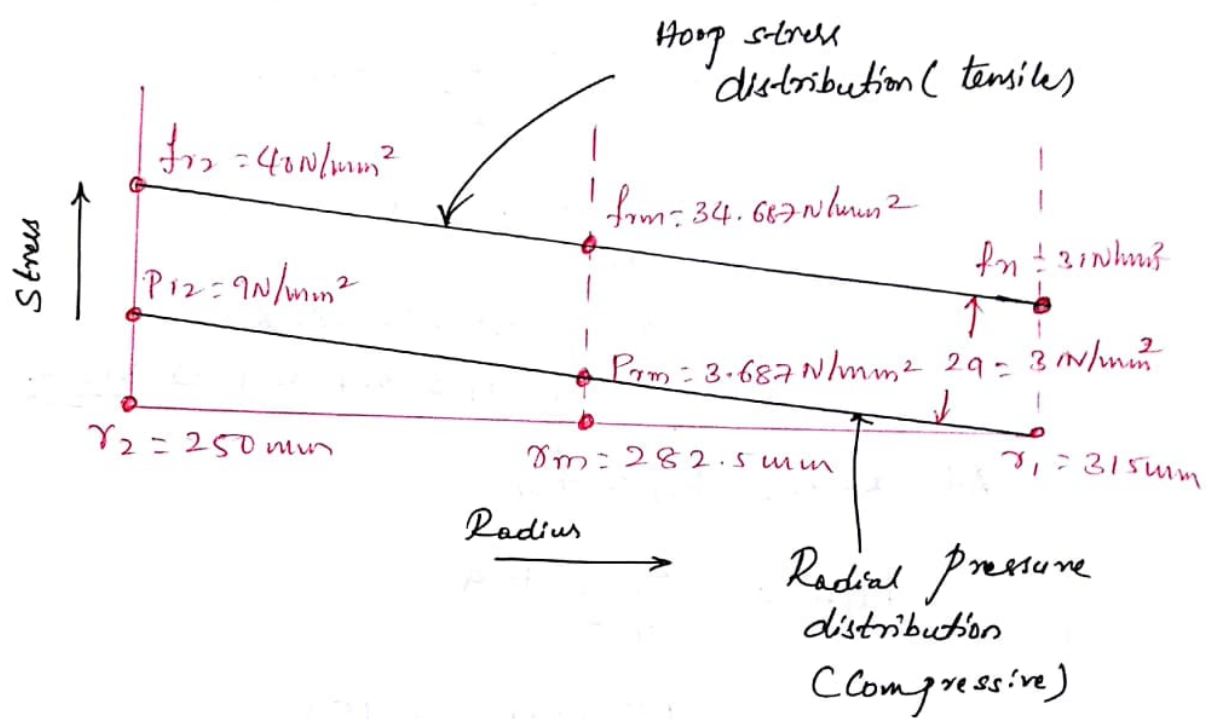 Hoop stress
distribution ( tensile)
fr2 = 40N/mm²
frm = 34.687N/mm²
fr1 = 31N/mm²
Stress
Pr2 = 9N/mm²
Prm = 3.687 N/mm²
2a = 31N/mm²
r2 = 250 mm
rm = 282.5 mm
r1 = 315mm
Radius
Radial Pressure
distribution
(Compressive)